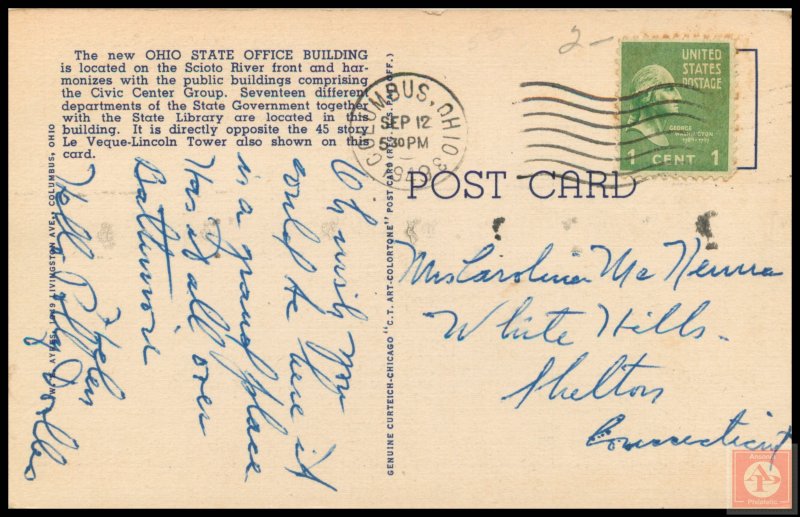 The new OHIO STATE OFFICE BUILDING
is located on the Scioto River front and har-
monizes with the public buildings comprising
the Civic Center Group. Seventeen different
departments of the State Government together
with the State Library are located in this
building. It is directly opposite the 45 story
Le Veque-Lincoln Tower also shown on this
card.
COLUMBUS, OHIO
SEP 12
5 30 PM
2-
UNITED
STATES
POSTAGE
GEORGE
WASHINGTON
1789-1797
1 CENT 1
POST CARD
GENUINE CURTEICH-CHICAGO "C.T. ART-COLORTONE" POST CARD (REG. U.S. PAT. OFF.)
LIVINGSTON AVE., COLUMBUS, OHIO
Oh wish you
could be here it
is a grand place
Has it all over
Baltimore
Helen
Hello Polly
Mrs Caroline Mc
White Hills.
Shelton
Connecticut
Ansonia
Philatelic